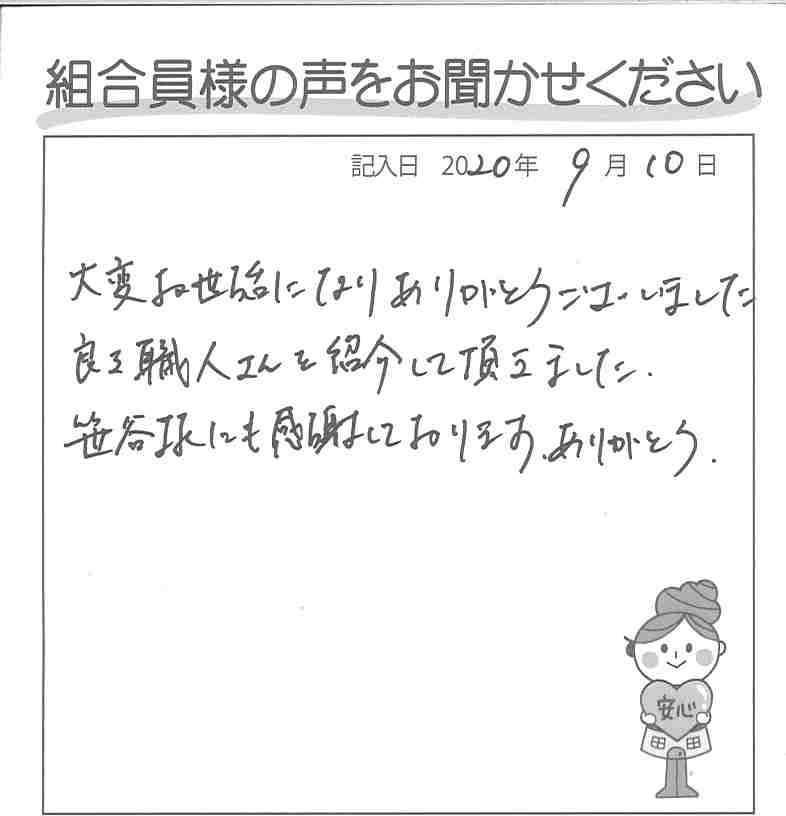 組合員様の声をお聞かせください
記入日 2020年 9月10日
大変お世話になりありがとうございました
良い職人さんを紹介して頂きました.
笹谷様にも感謝しております、ありがとう.
安心